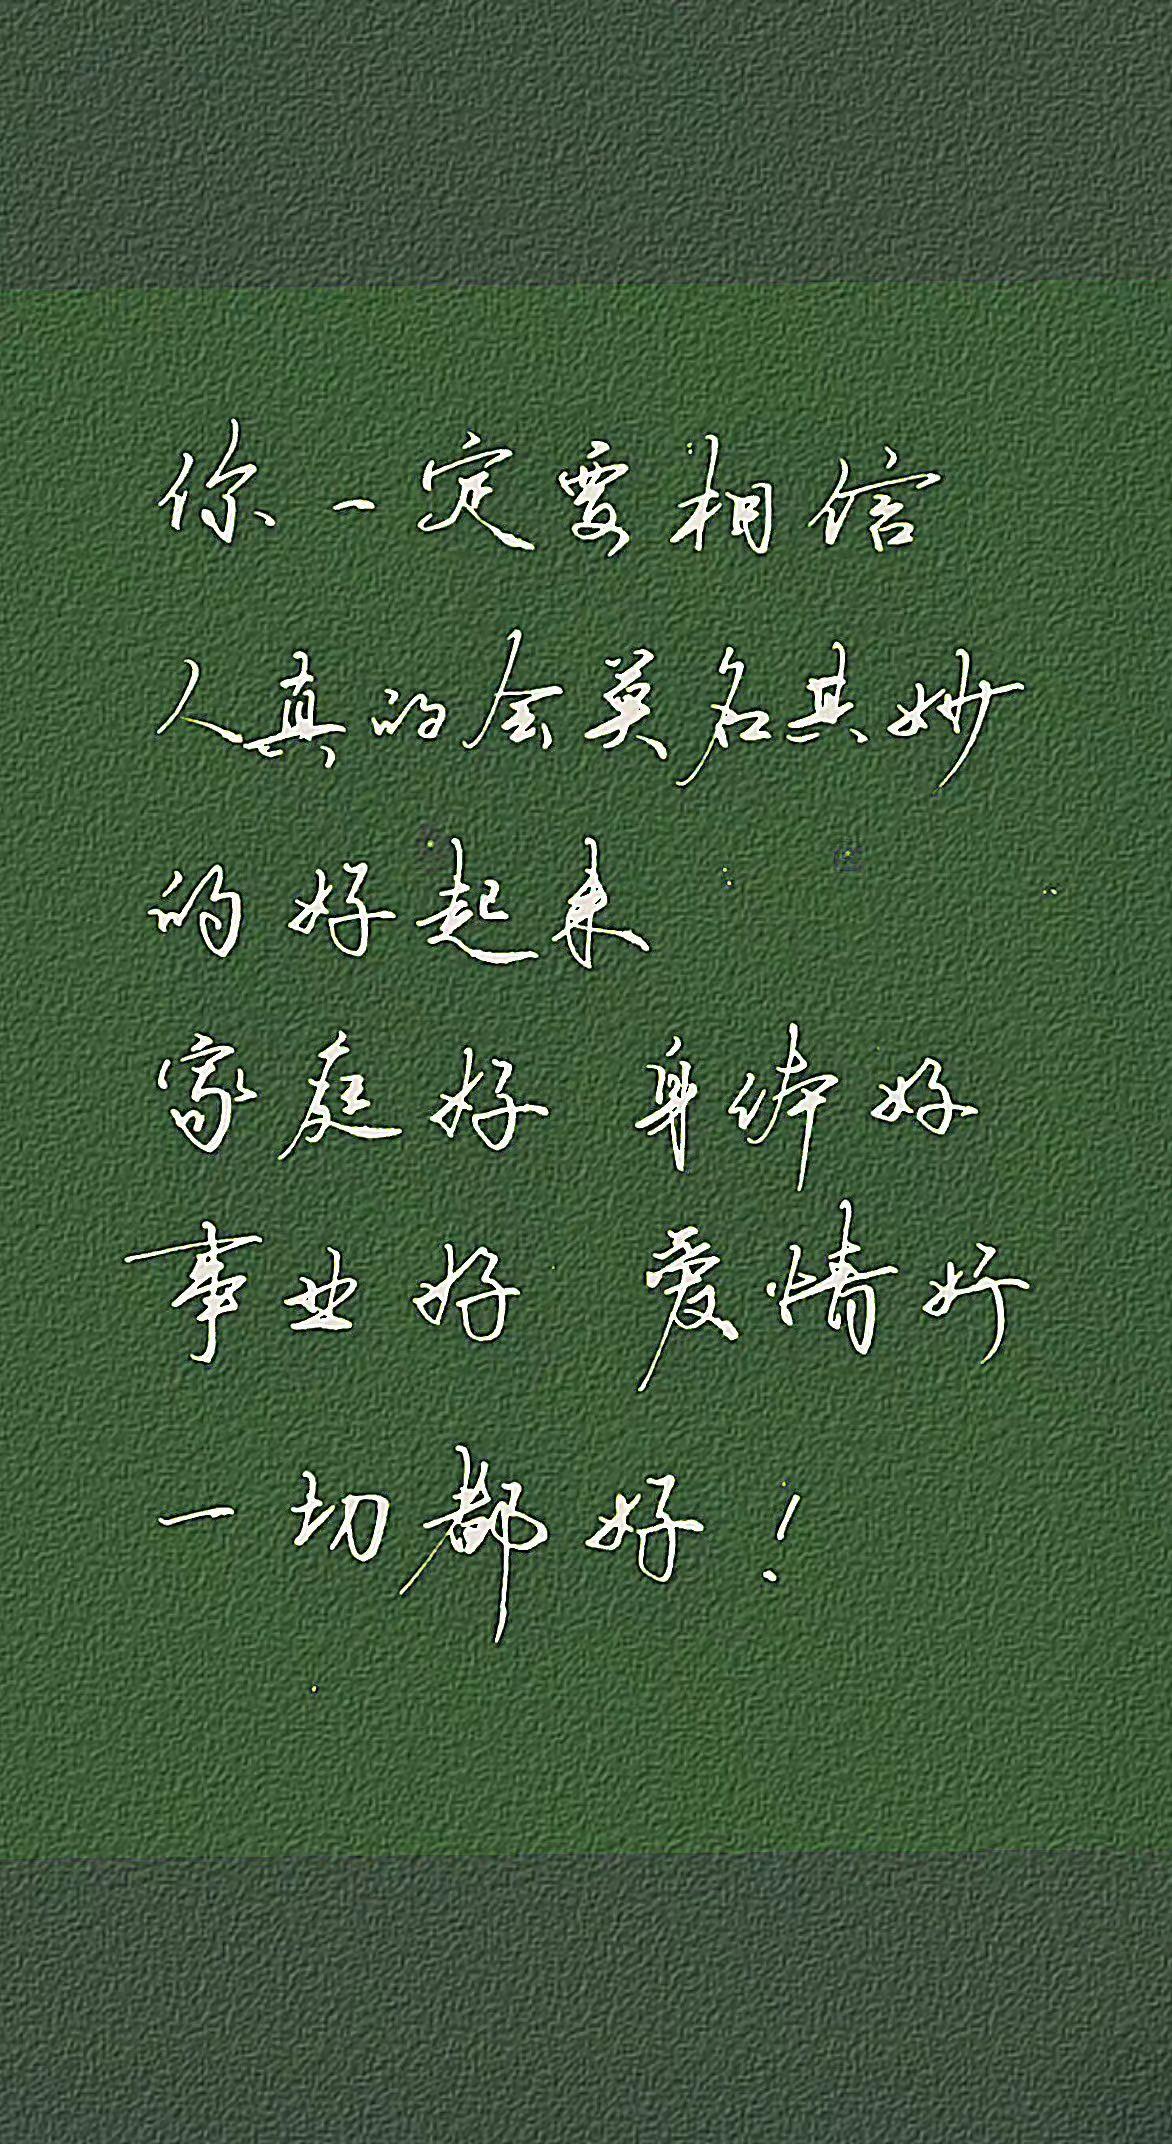 你一定要相信
人真的会莫名其妙
的好起来
家庭好 身体好
事业好 爱情好
一切都好！